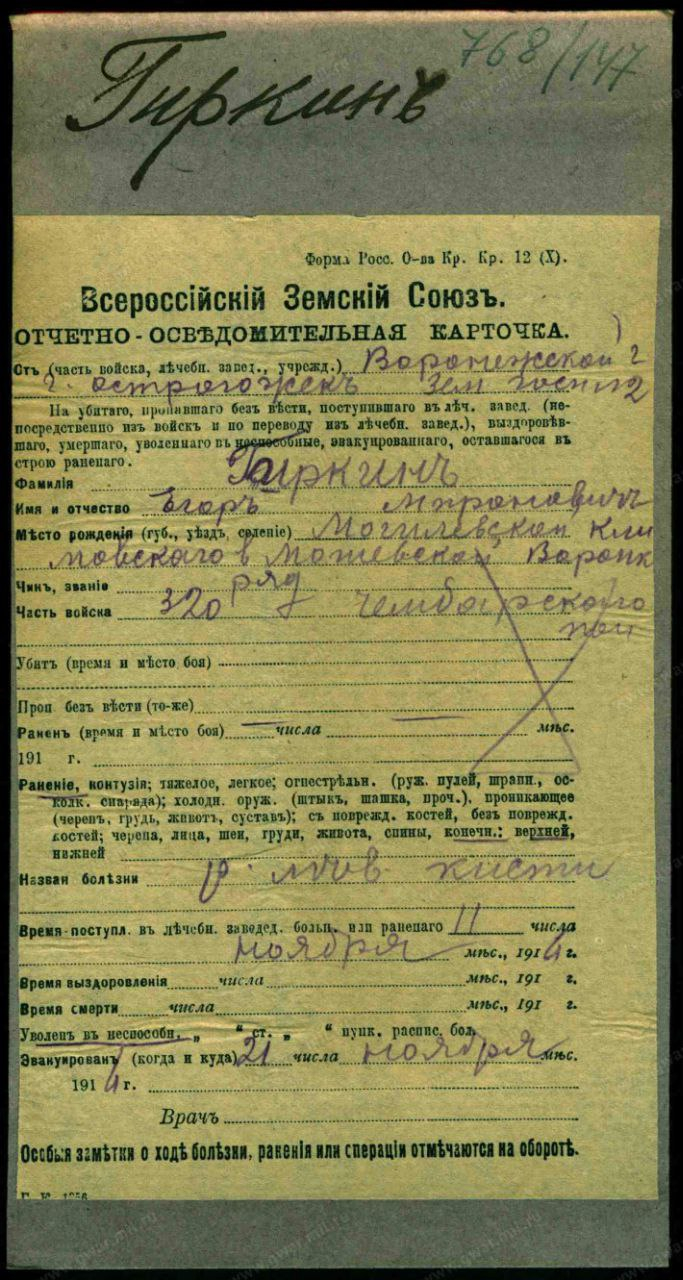 768/147
Гиркинъ
Форма Росс. О-ва Кр. Кр. 12 (X).
Всероссійскій Земскій Союзъ.
ОТЧЕТНО-ОСВѢДОМИТЕЛЬНАЯ КАРТОЧКА.
Отъ (часть войска, лѣчебн. завед., учрежд.) Воронежской г
г. Острогожскъ Зем госп №2
На убитаго, пропавшаго безъ вѣсти, поступившаго въ лѣч. завед. (не-
посредственно изъ войскъ и по переводу изъ лѣчебн. завед.), выздоровѣв-
шаго, умершаго, уволеннаго въ неспособные, эвакуированнаго, оставшагося въ
строю раненаго.
Фамилія Гиркинъ
Имя и отчество Егоръ Мироновичъ
Мѣсто рожденія (губ., уѣздъ, селеніе) Могилевской Кли
мовскаго в
Чинъ, званіе ряд
Часть войска 320 Чембарскаго
пѣх
Убитъ (время и мѣсто боя)
Проп. безъ вѣсти (то-же)
Раненъ (время и мѣсто боя) числа мѣс.
191 г.
Раненіе, контузія; тяжелое, легкое; огнестрѣльн. (руж. пулей, шрапн., ос-
колк. снаряда); холодн. оруж. (штыкъ, шашка, проч.), проникающее
(черепъ, грудь, животъ, суставъ); съ поврежд. костей, безъ поврежд.
костей; черепа, лица, шеи, груди, живота, спины, конечн.: верхней,
нижней
Назван болѣзни р. лѣв кисти
Время поступл. въ лѣчебн. заведед. больн. или раненаго 11 числа
ноября мѣс., 1914 г.
Время выздоровленія числа мѣс., 191 г.
Время смерти числа мѣс., 191 г.
Уволенъ въ неспособн. „ “ ст. „ “ пунк. распис. бол.
Эвакуированъ (когда и куда) 21 числа ноября мѣс.
1914 г.
Врачъ
Особыя замѣтки о ходѣ болѣзни, раненія или операціи отмѣчаются на оборотѣ.